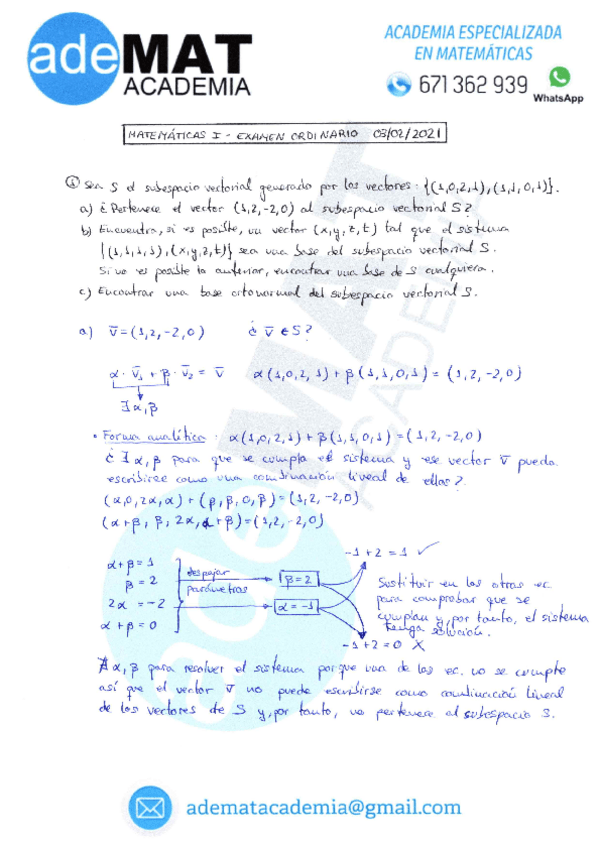 adeMAT
ACADEMIA
ACADEMIA ESPECIALIZADA
EN MATEMÁTICAS
671 362 939
WhatsApp
MATEMÁTICAS I - EXAMEN ORDINARIO 03/02/2021
① Sea S el subespacio vectorial generado por los vectores: {(1,0,2,1),(1,1,0,1)}.
a) ¿Pertenece el vector (1,2,-2,0) al subespacio vectorial S?
b) Encuentra, si es posible, un vector (x,y,z,t) tal que el sistema
{(1,1,1,1),(x,y,z,t)} sea una base del subespacio vectorial S.
Si no es posible lo anterior, encontrar una base de S cualquiera.
c) Encontrar una base ortonormal del subespacio vectorial S.
a) v̄ = (1,2,-2,0) ¿ v̄ ∈ S?
α · v̄₁ + β · v̄₂ = v̄ α(1,0,2,1) + β(1,1,0,1) = (1,2,-2,0)
∃ α,β
• Forma analítica: α(1,0,2,1) + β(1,1,0,1) = (1,2,-2,0)
¿ ∃ α,β para que se cumpla el sistema y ese vector v̄ pueda
escribirse como una combinación lineal de ellos?
(α,0,2α,α) + (β,β,0,β) = (1,2,-2,0)
(α+β, β, 2α, α+β) = (1,2,-2,0)
α+β = 1
β = 2
2α = -2
α+β = 0
despejar
parámetros
β = 2
α = -1
-1+2 = 1 ✓
-1+2 = 0 X
Sustituir en las otras ec.
para comprobar que se
cumplan y, por tanto, el sistema
tenga solución.
∄ α,β para resolver el sistema porque una de las ec. no se cumple
así que el vector v̄ no puede escribirse como combinación lineal
de los vectores de S y, por tanto, no pertenece al subespacio S.
adematacademia@gmail.com